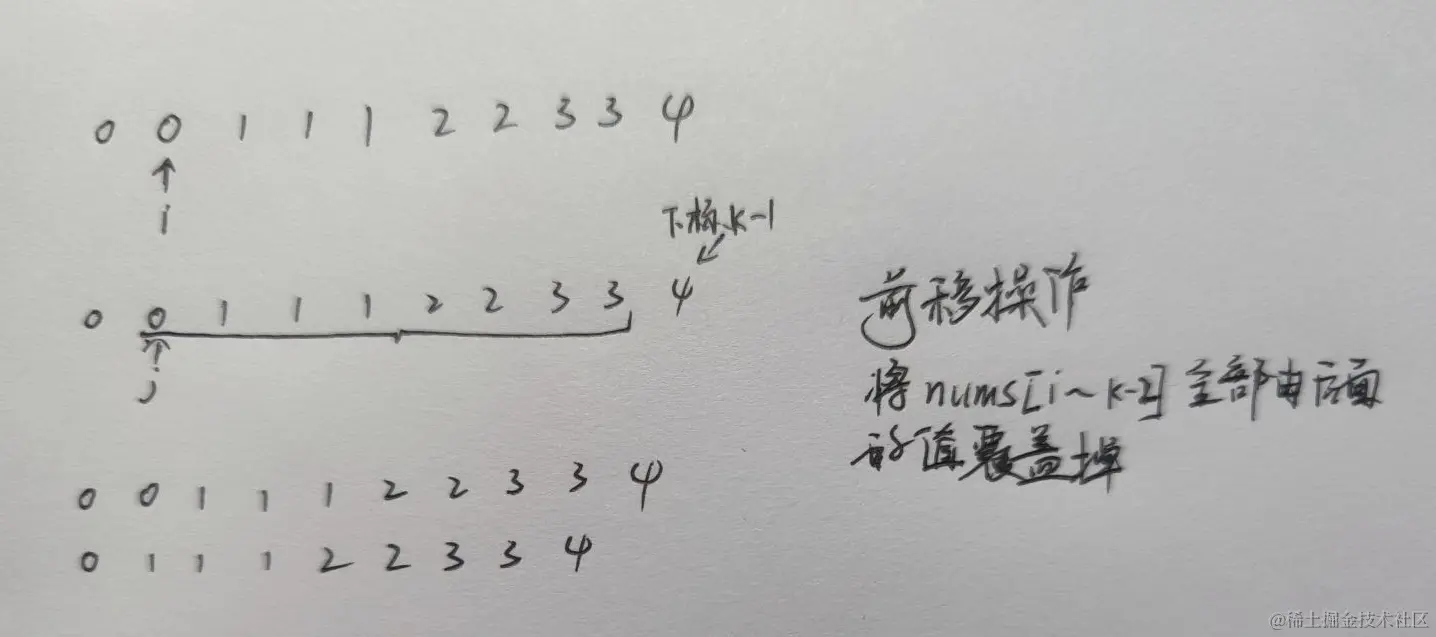 0 0 1 1 1 2 2 3 3 4
↑
i
下标k-1
↙
0 0 1 1 1 2 2 3 3 4
↑
j
前移操作
将nums[i~k-2]全部由后面
的值覆盖掉
0 0 1 1 1 2 2 3 3 4
0 1 1 1 2 2 3 3 4
@稀土掘金技术社区